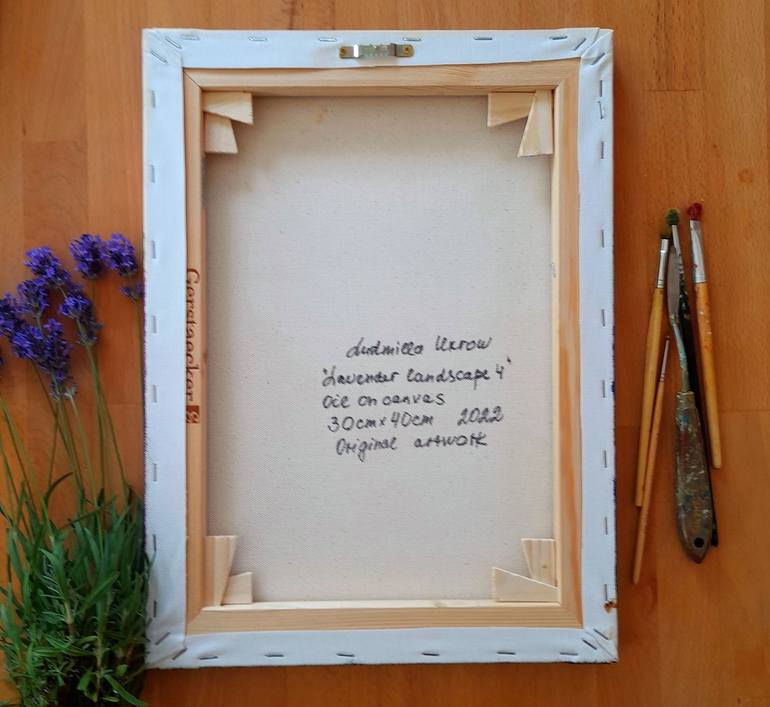 Gerstaecker
Ludmilla Ukrow
"Lavender landscape 4"
Oil on canvas
30cm x 40cm 2022
Original artwork